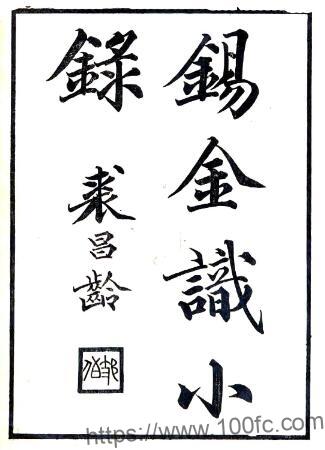 錫金識小
錄
裘昌齡
https://www.100fc.com